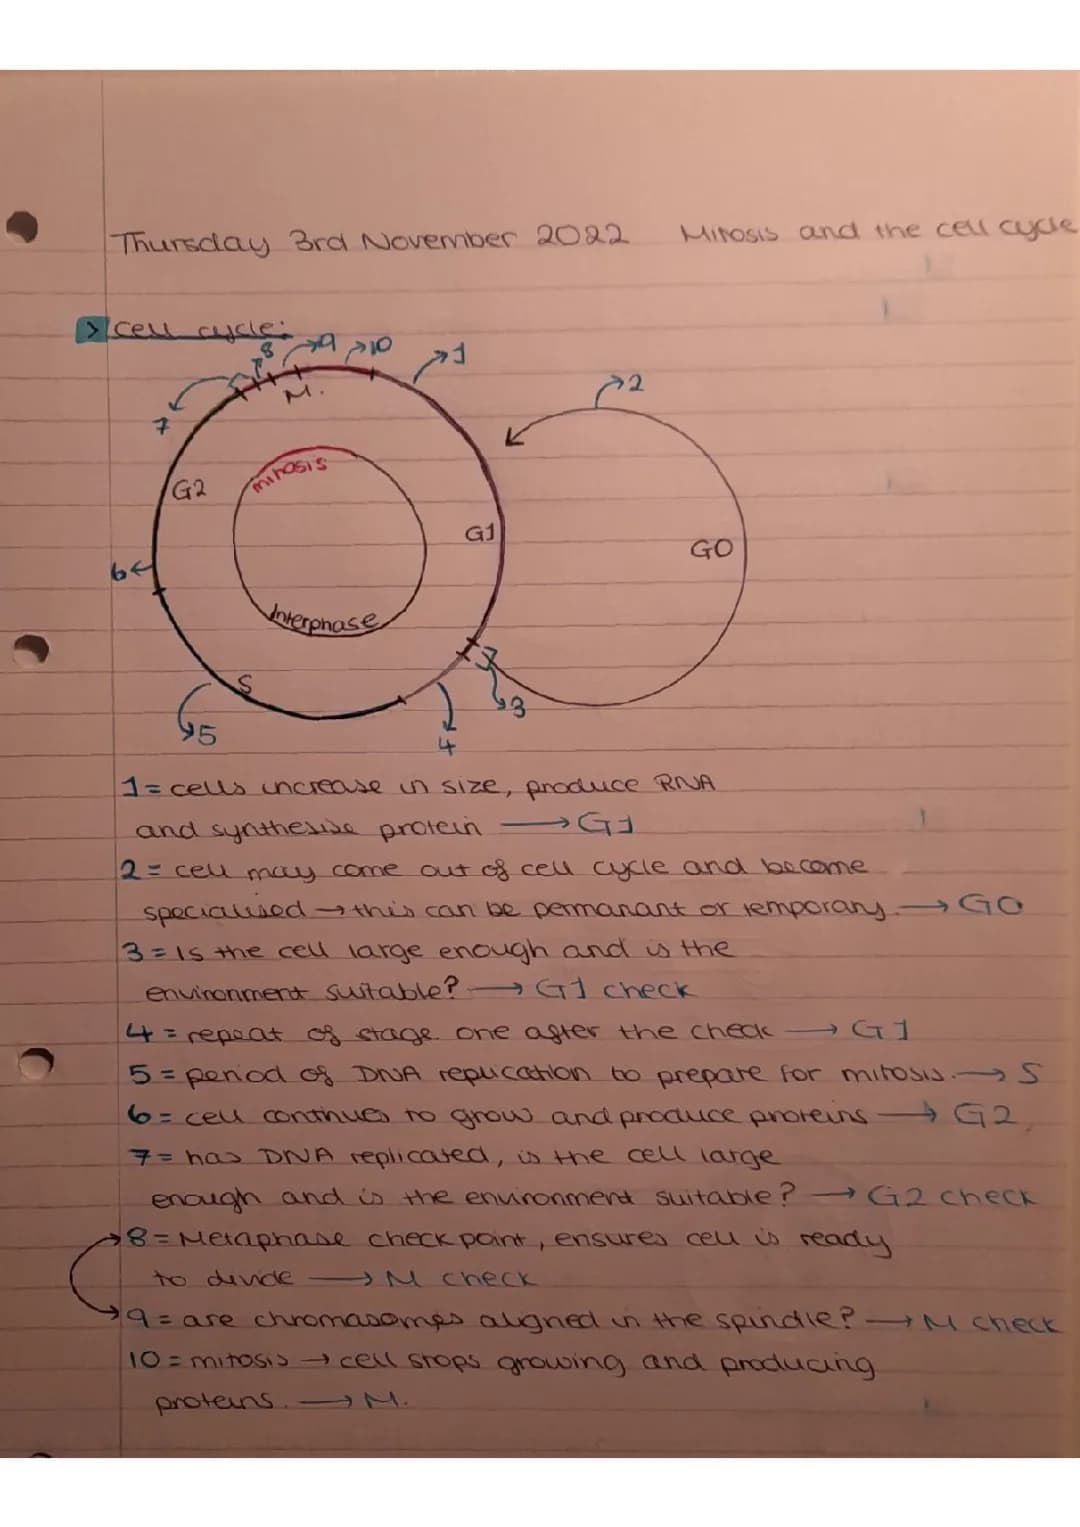 Thursday 3rd November 2022 Mitosis and the cell cycle
> cell cycle:
8 9 10 1
M.
2
7
mitosis
G2
G1
G0
6
Interphase
S
3
5
4
1 = cells increase in size, produce RNA
and synthesise protein → G1
2 = cell may come out of cell cycle and become
specialised → this can be permanant or temporary. → G0
3 = Is the cell large enough and is the
environment suitable? → G1 check
4 = repeat of stage one after the check → G1
5 = period of DNA replication to prepare for mitosis. → S
6 = cell continues to grow and produce proteins → G2
7 = has DNA replicated, is the cell large
enough and is the environment suitable? → G2 check
8 = Metaphase checkpoint, ensures cell is ready
to divide → M check
9 = are chromasomes aligned in the spindle? → M check
10 = mitosis → cell stops growing and producing
proteins. → M.